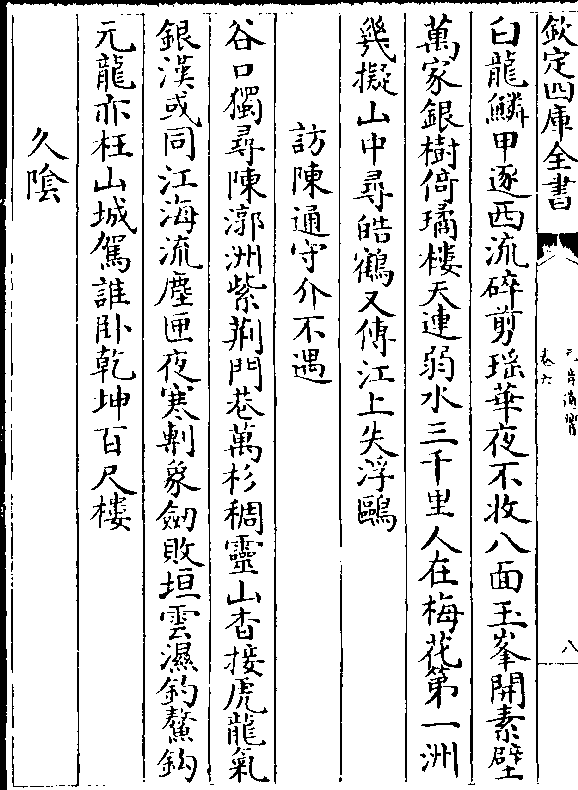 欽定四庫全書
卷六
八
白龍鱗甲逐西流碎剪瑶華夜不收八面玉峯開素壁
萬家銀樹倚璚樓天連弱水三千里人在梅花第一洲
幾擬山中尋皓鶴又傳江上失浮鷗
訪陳通守介不遇
谷口獨尋陳漷洲紫荆門巷萬杉稠靈山杳接虎龍氣
銀漢或同江海流塵匣夜寒剸象劒敗垣雲濕釣鰲鈎
元龍亦枉山城駕誰卧乾坤百尺樓
久陰